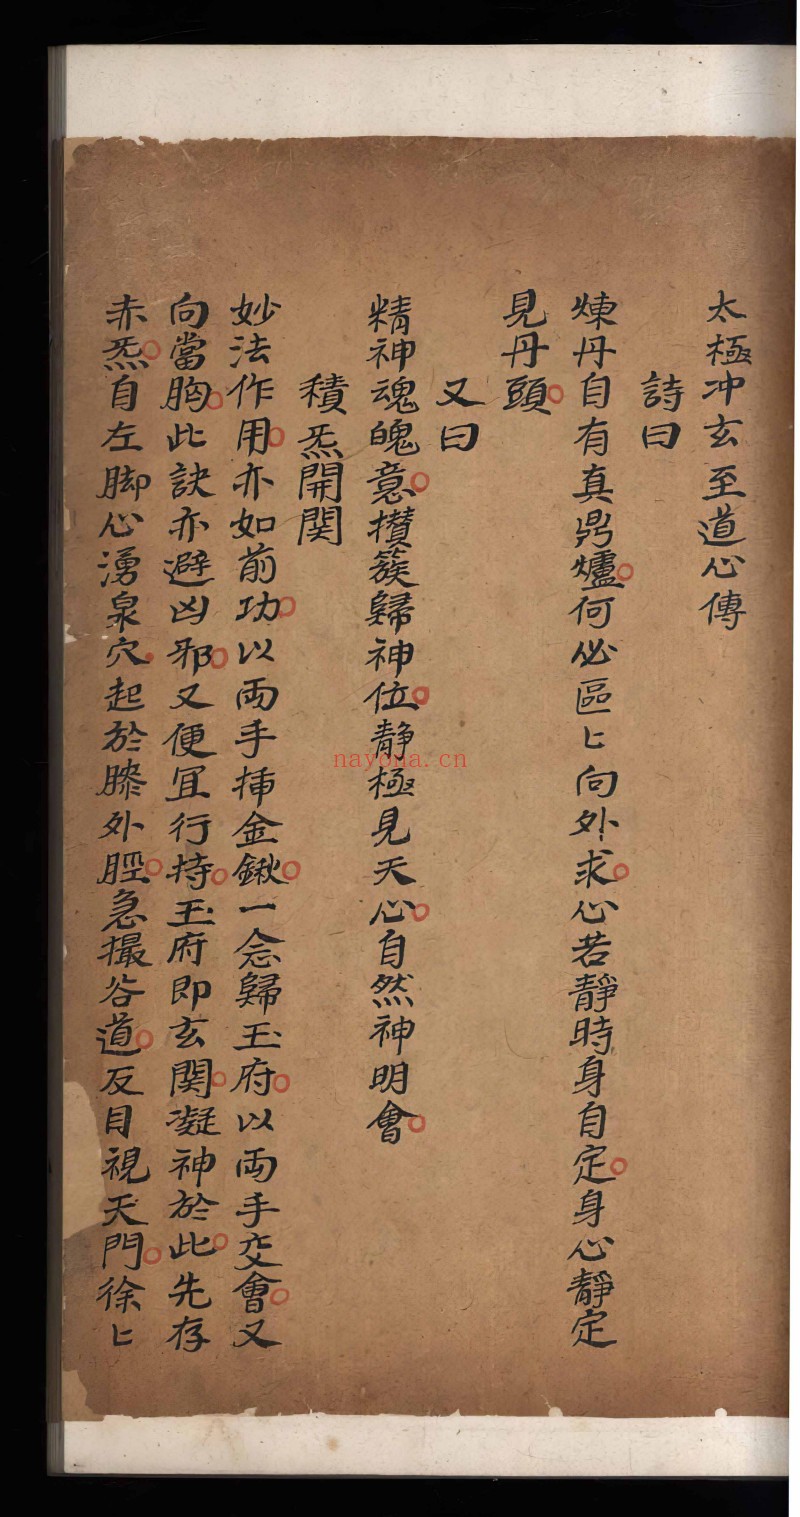 太極冲玄至道心傳
詩曰
煉丹自有真鼎爐何必區匕向外求心若靜時身自定身心靜定
見丹頭
又曰
精神魂魄意攅簇歸神位靜極見天心自然神明會
積炁開関
妙法作用亦如前功以兩手揷金鍬一念歸玉府以兩手交會又
向當胸此訣亦避凶邪又便冝行持玉府即玄関凝神於此先存
赤炁自左脚心湧泉穴起於膝外脛急撮谷道反目視天門徐匕
nayona.cn